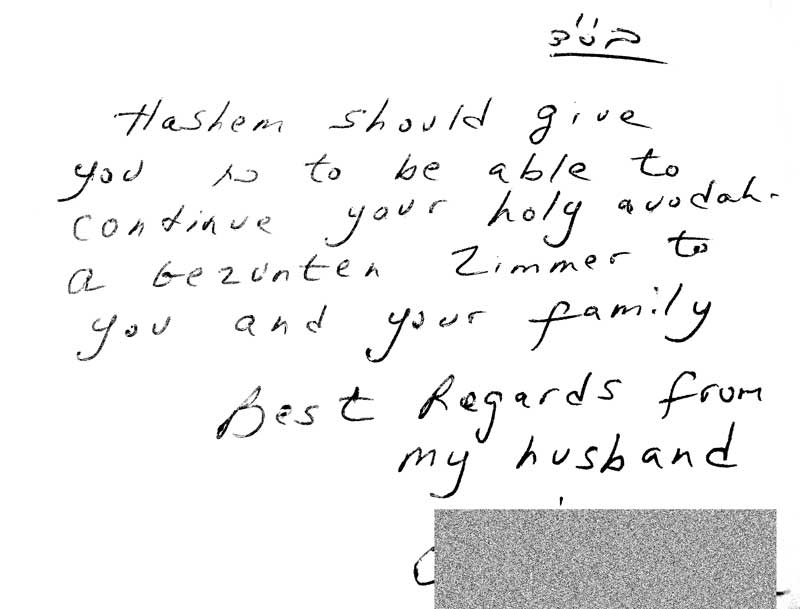 בס״ד
Hashem should give
you כח to be able to
continue your holy avodah.
a Gezunten Zimmer to
you and your family
Best Regards from
my husband